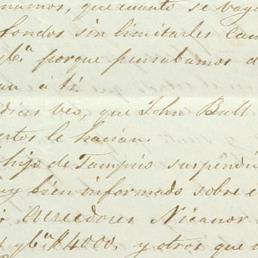 namos, que cuanto se vaya
fondos sin limitarles can
porque pensabamos d
an á ti.
dices ves, que John Bull
le hacian.
hijo de Tampico suspendi
uy bien informado sobre e
Acreedores Nicanor
$4000. y otros que